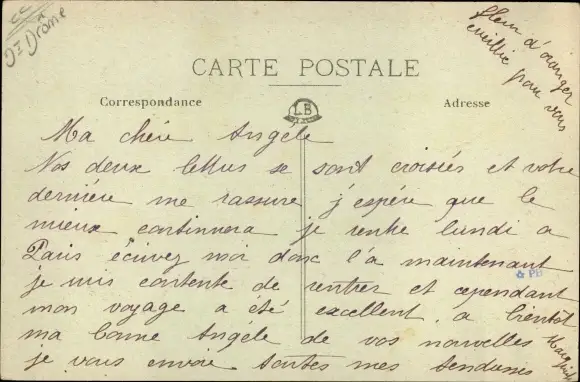 Dr Drôme
fleur d'oranger
cueillie pour vous
CARTE POSTALE
Correspondance
LB
Adresse
Ma chère Angèle
Nos deux lettres se sont croisées et votre
dernière me rassure j'espère que le
mieux continuera je rentre lundi a
Paris écrivez moi donc là maintenant
& PB
je suis contente de rentrer et cependant
mon voyage a été excellent a bientôt
ma bonne Angèle de vos nouvelles
je vous envoie toutes mes tendresses